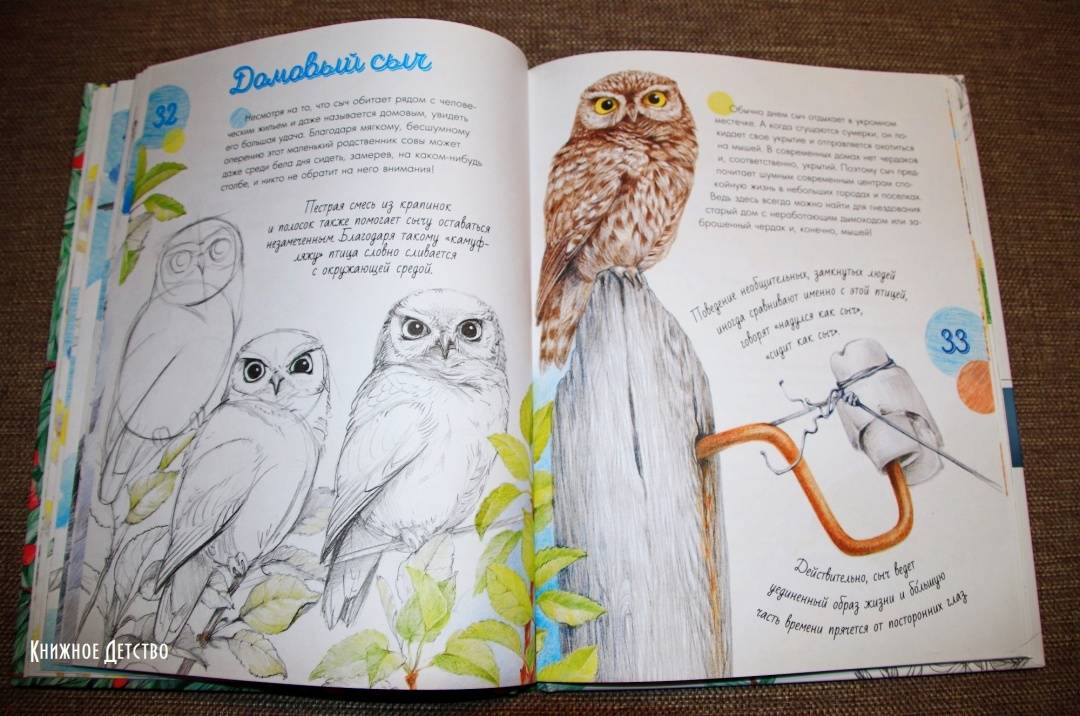 32
Домовый сыч
Несмотря на то, что сыч обитает рядом с челове-
ческим жильем и даже называется домовым, увидеть
его большая удача. Благодаря мягкому, бесшумному
оперению этот маленький родственник совы может
даже среди бела дня сидеть, замерев, на каком-нибудь
столбе, и никто не обратит на него внимания!
Пестрая смесь из крапинок
и полосок также помогает сычу оставаться
незамеченным. Благодаря такому «камуф-
ляжу» птица словно сливается
с окружающей средой.
Обычно днем сыч отдыхает в укромном
местечке. А когда сгущаются сумерки, он по-
кидает свое укрытие и отправляется охотиться
на мышей. В современных домах нет чердаков
и, соответственно, укрытий. Поэтому сыч пред-
почитает шумным современным центрам спо-
койную жизнь в небольших городах и поселках.
Ведь здесь всегда можно найти для гнездования
старый дом с неработающим дымоходом или за-
брошенный чердак и, конечно, мышей!
Поведение необщительных, замкнутых людей
иногда сравнивают именно с этой птицей,
говорят «надулся как сыч»,
«сидит как сыч».
33
Действительно, сыч ведет
уединенный образ жизни и бо́льшую
часть времени прячется от посторонних глаз
Книжное Детство